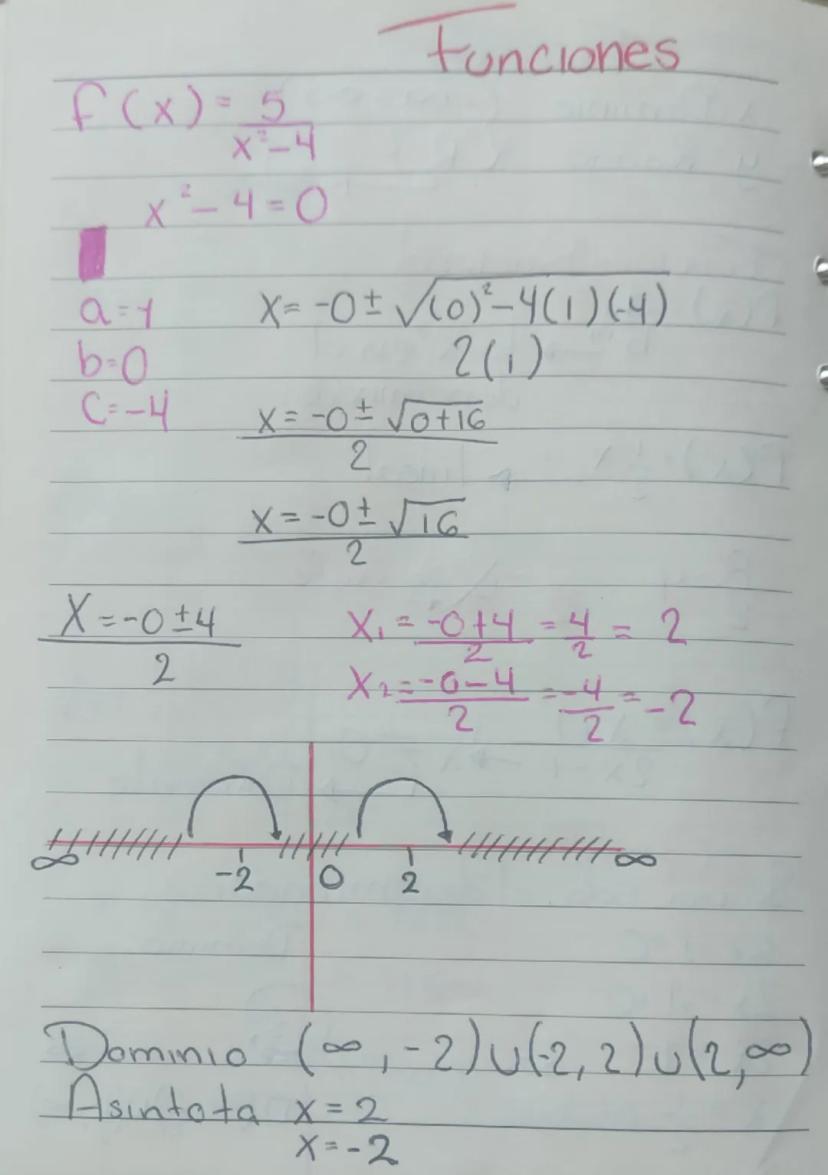 Funciones
f(x) = 5
x²-4
x² - 4 = 0
a=1 x= -0 ± √(0)² - 4(1)(-4)
b=0 2(1)
c=-4 x = -0 ± √0+16
2
x = -0 ± √16
2
X = -0 ± 4 X₁ = -0+4 = 4 = 2
2 2 2
X₂ = -0-4 = -4 = -2
2 2
∞ -2 0 2 ∞
Dominio (∞, -2)∪(-2, 2)∪(2, ∞)
Asintota x = 2
x = -2